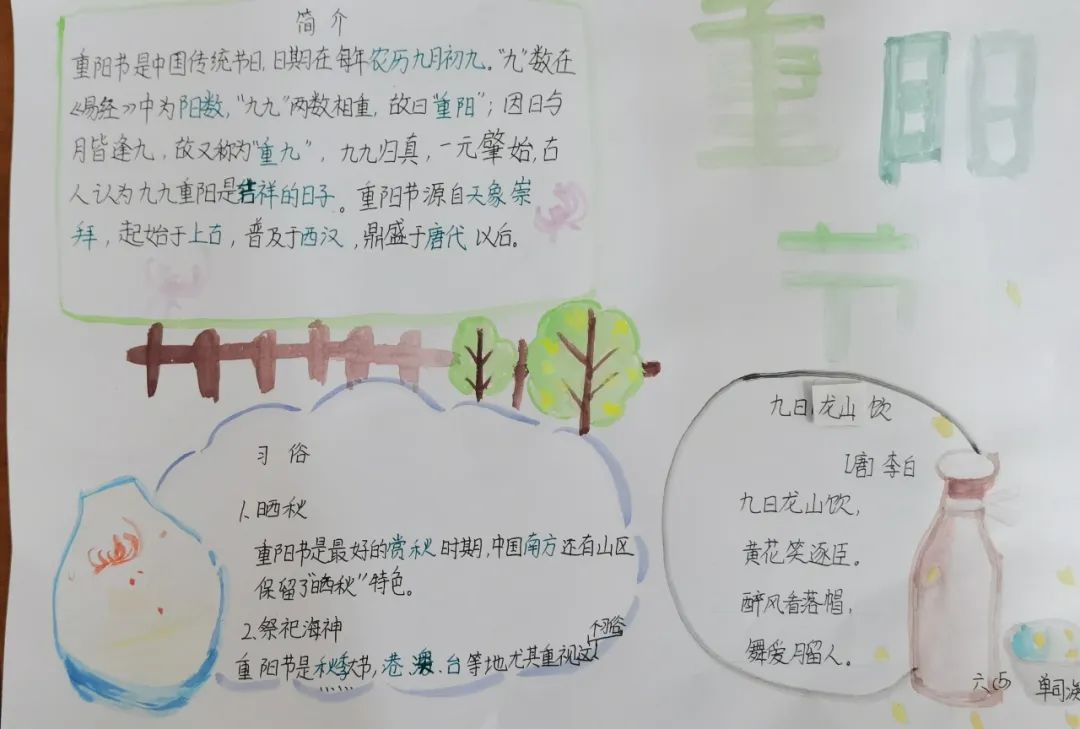 重阳节
简介
重阳节是中国传统节日,日期在每年农历九月初九。"九"数在
《易经》中为阳数,"九九"两数相重,故曰"重阳";因日与
月皆逢九,故又称为"重九",九九归真,一元肇始,古
人认为九九重阳是吉祥的日子。重阳节源自天象崇
拜,起始于上古,普及于西汉,鼎盛于唐代以后。
习俗
1.晒秋
重阳节是最好的赏秋时期,中国南方还有山区
保留了"晒秋"特色。
2.祭祀海神
重阳节是秋季大节,港、澳、台等地尤其重视这个习俗
九日龙山饮
【唐】李白
九日龙山饮,
黄花笑逐臣。
醉风看落帽,
舞爱月留人。
六(5)
单同